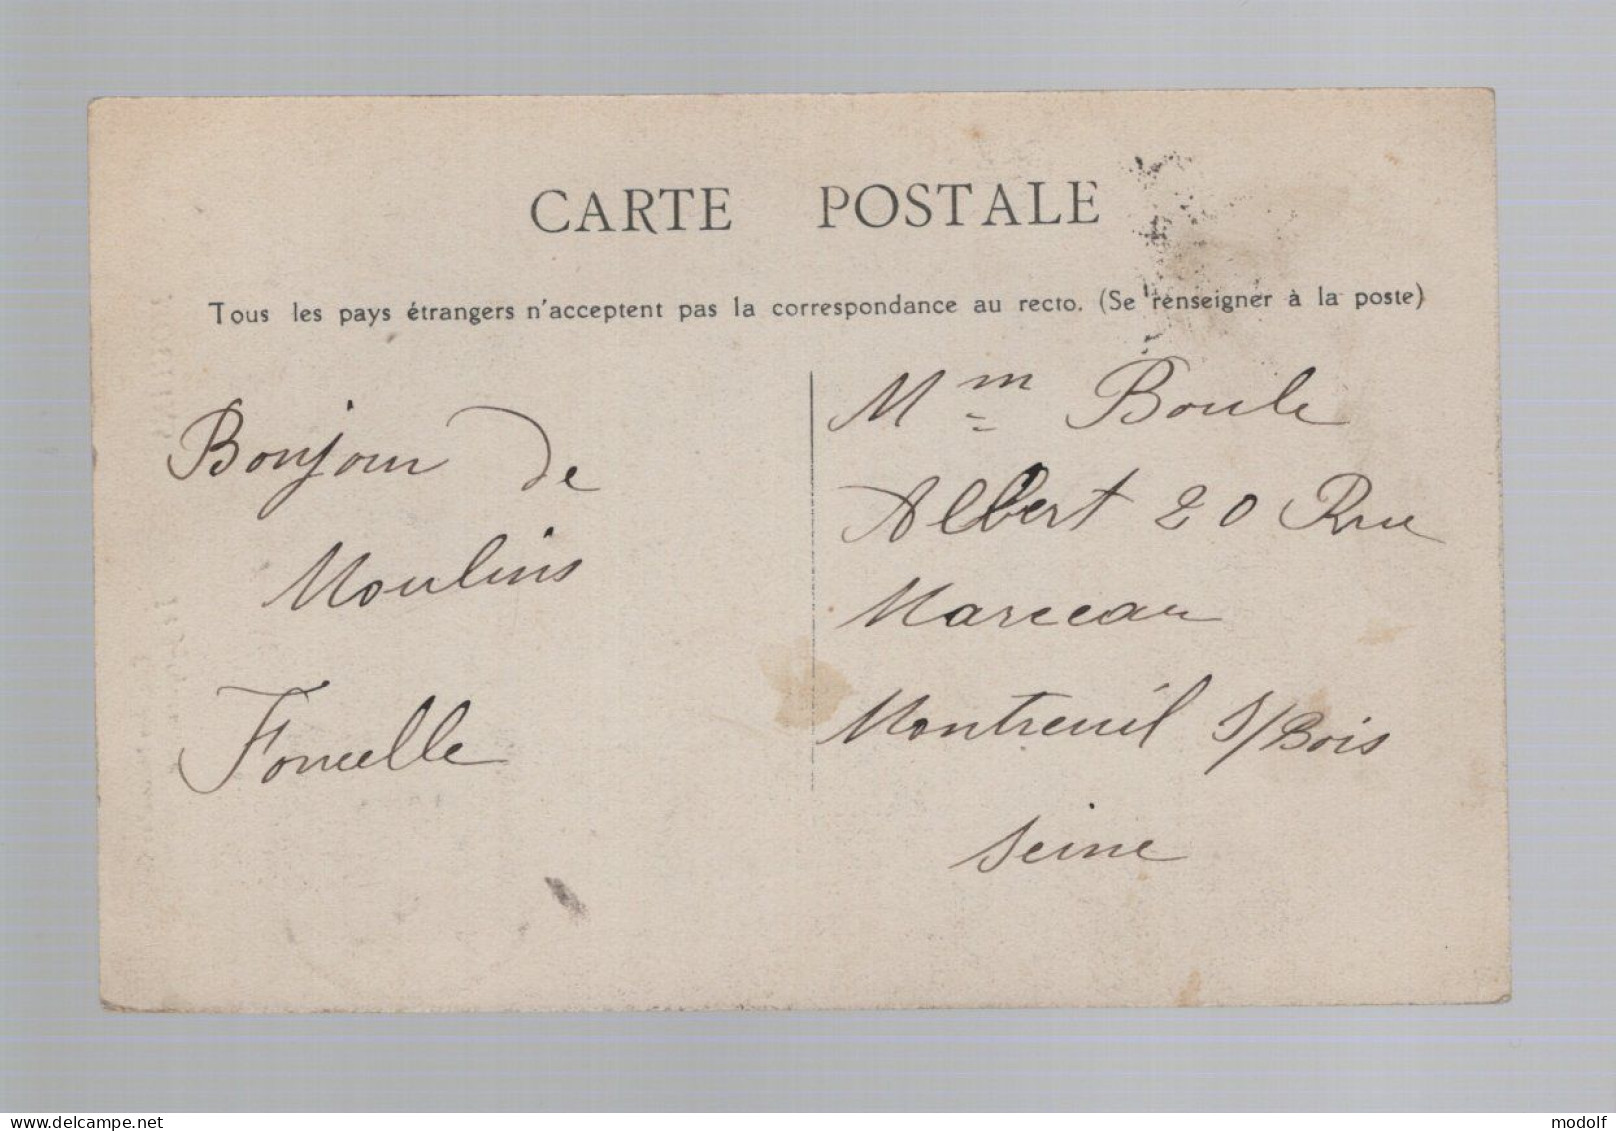 CARTE POSTALE
Tous les pays étrangers n'acceptent pas la correspondance au recto. (Se renseigner à la poste)
Bonjour de
Moulins
Mm Boule
Albert 20 Rue
Marceau
Montreuil S/Bois
Seine
delcampe.net
modolf